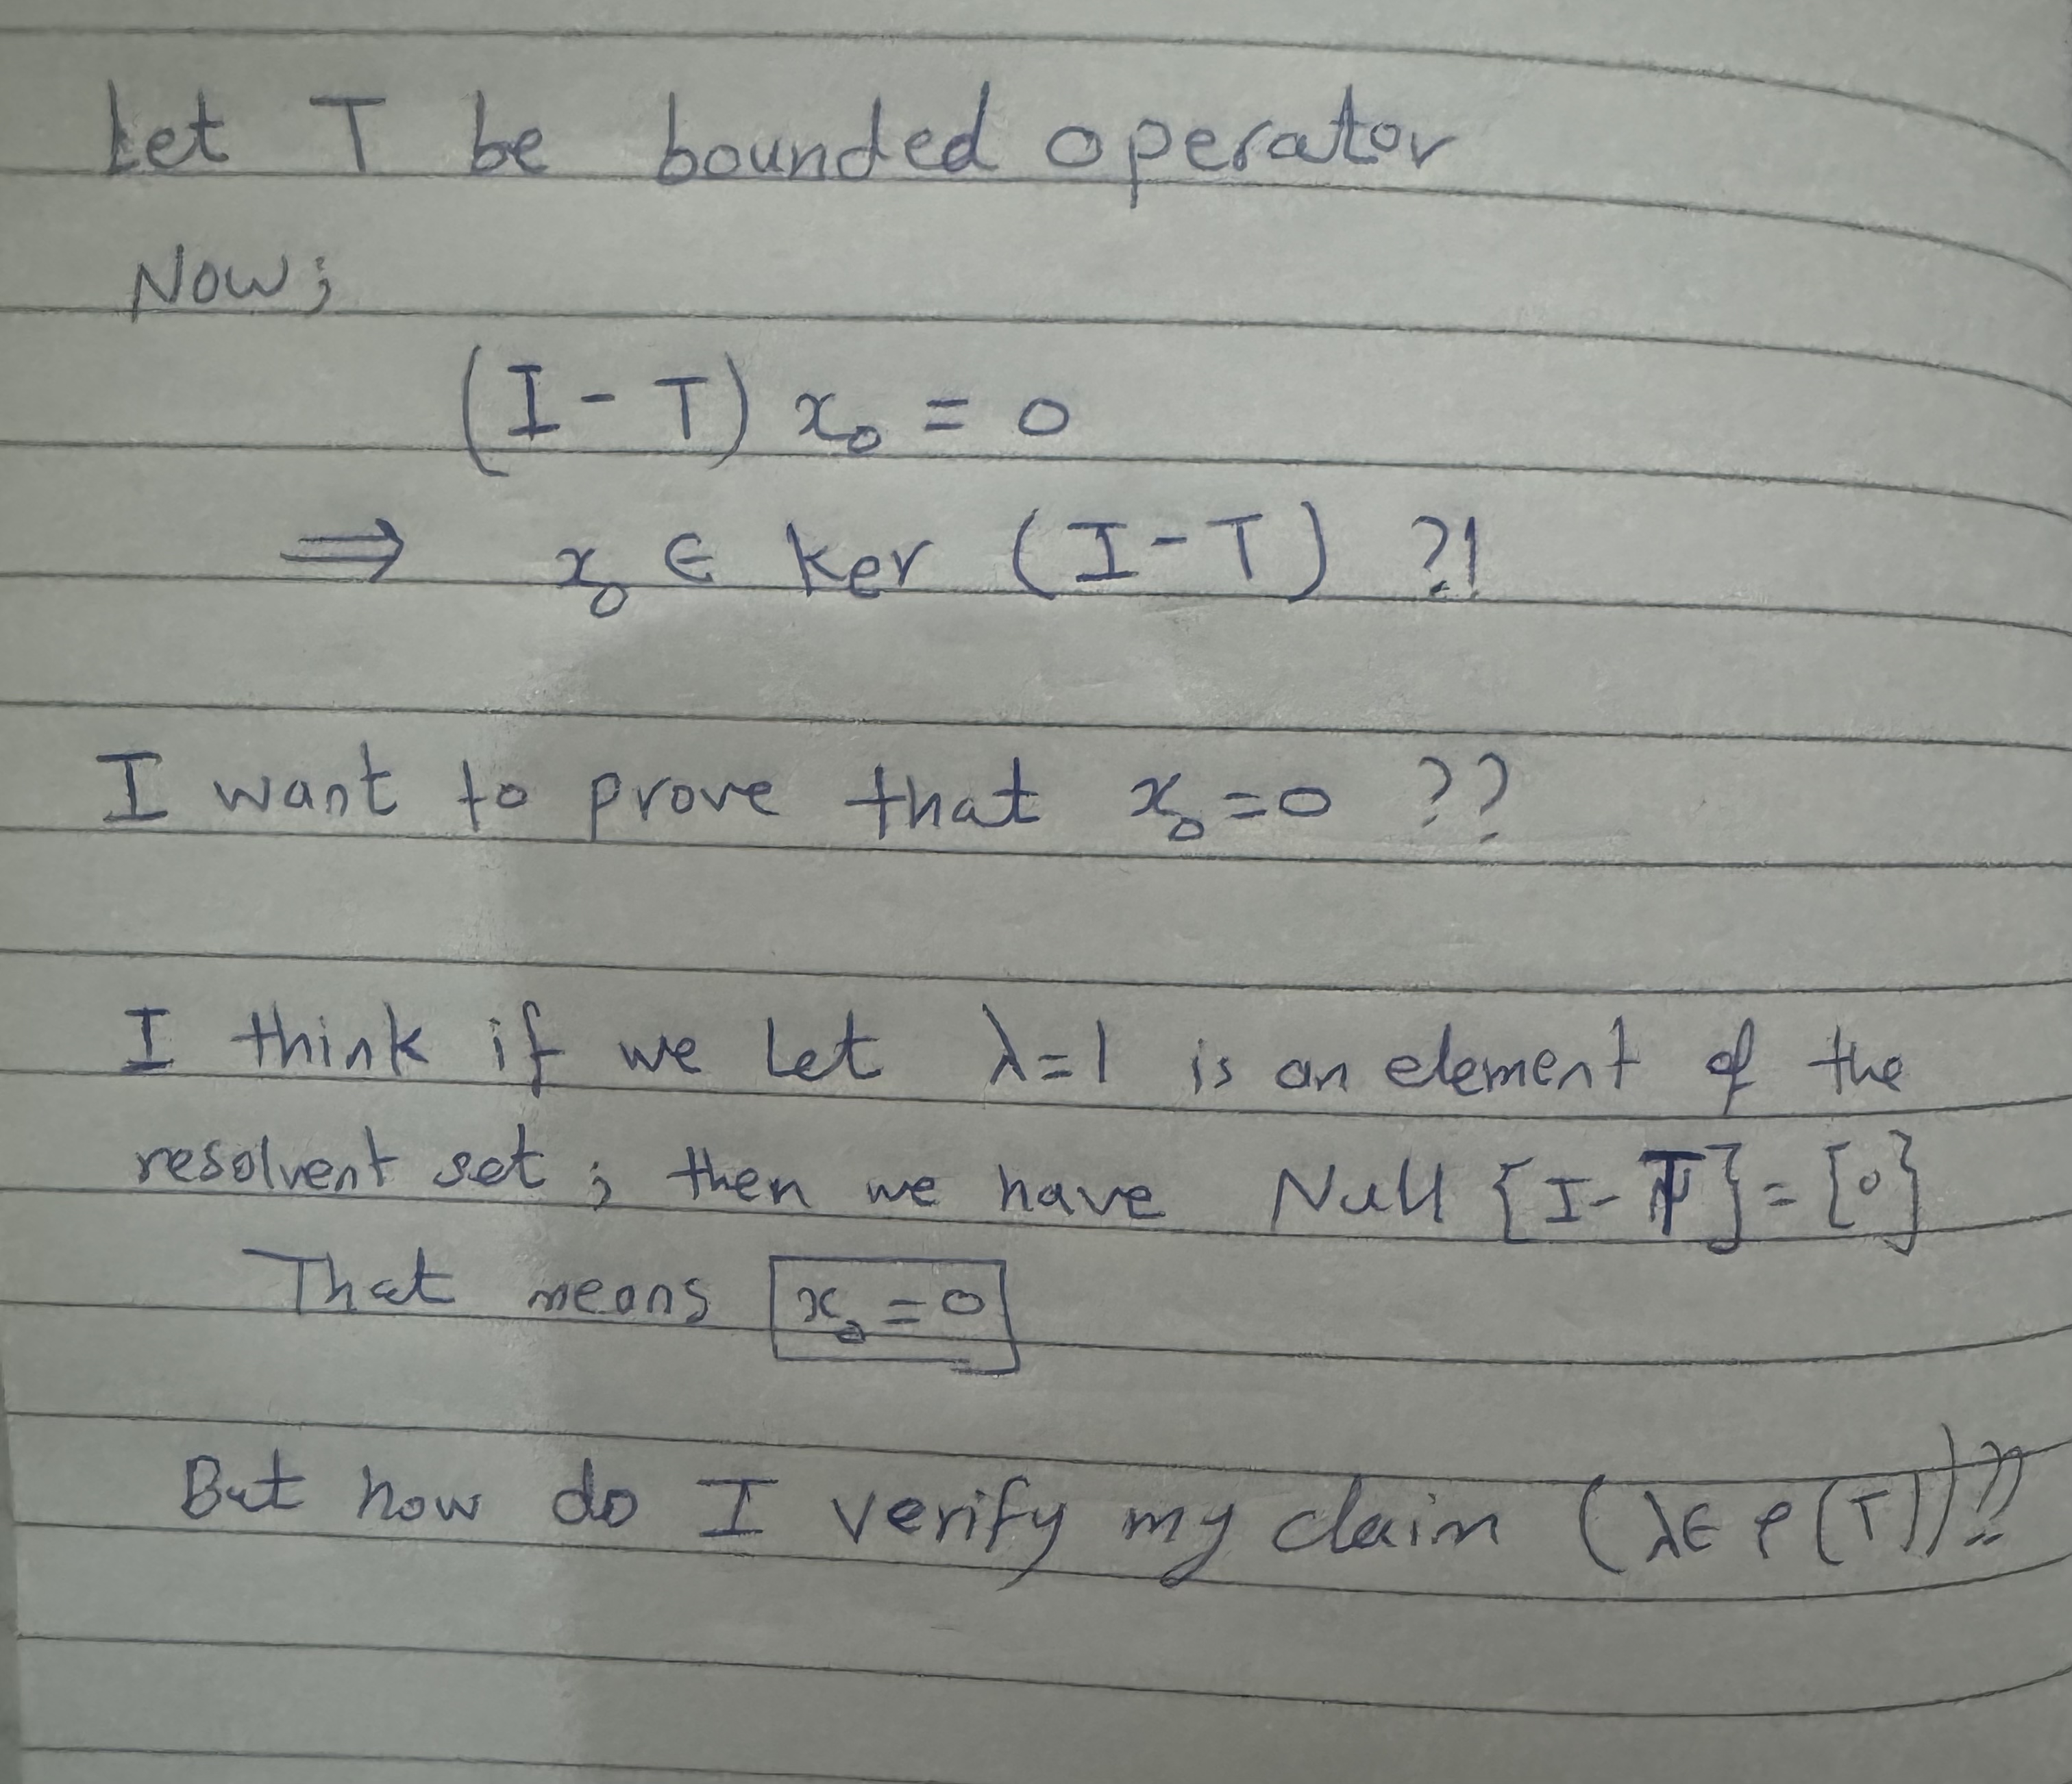 Let T be bounded operator
Now;
(I - T) x₀ = 0
⟹ x₀ ∈ ker (I - T) ?!
I want to prove that x₀ = 0 ??
I think if we let λ=1 is an element of the
resolvent set ; then we have Null {I - T} = {0}
That means x₀ = 0
But how do I verify my claim (λ ∈ ρ(T)) ??